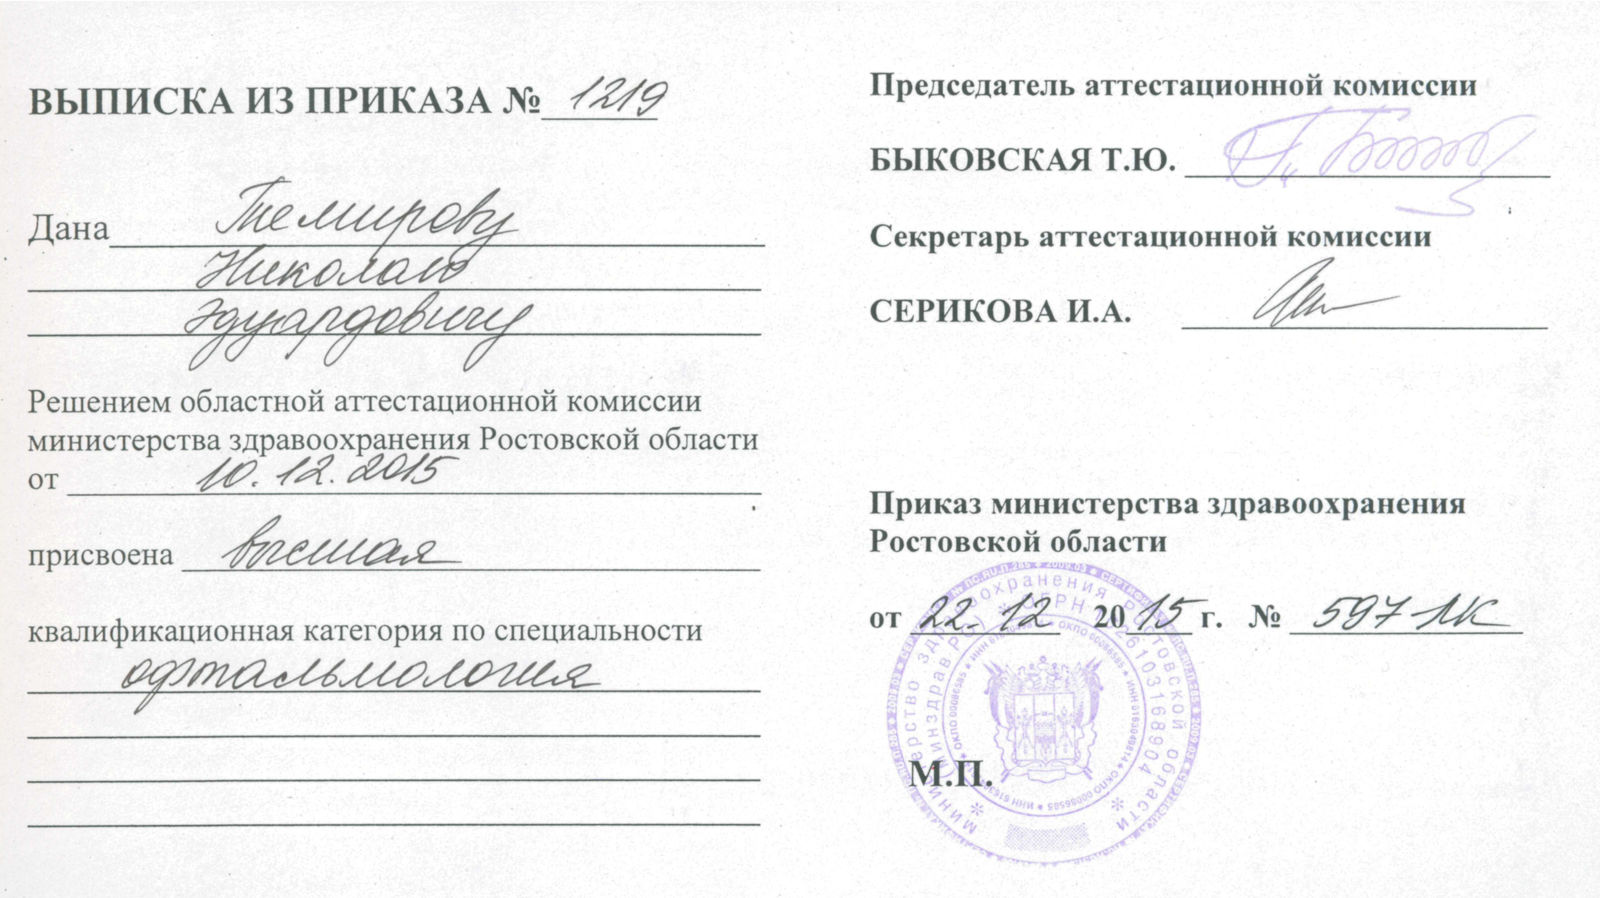 ВЫПИСКА ИЗ ПРИКАЗА № 1219
Дана Темирову
Николаю
Эдуардовичу
Решением областной аттестационной комиссии
министерства здравоохранения Ростовской области
от 10.12.2015
присвоена высшая
квалификационная категория по специальности
офтальмология
Председатель аттестационной комиссии
БЫКОВСКАЯ Т.Ю.
Секретарь аттестационной комиссии
СЕРИКОВА И.А.
Приказ министерства здравоохранения
Ростовской области
от 22.12 2015 г. № 597-ЛК
М.П.
Министерство здравоохранения Ростовской области
ОГРН 1026103168904
ОКПО 00086585